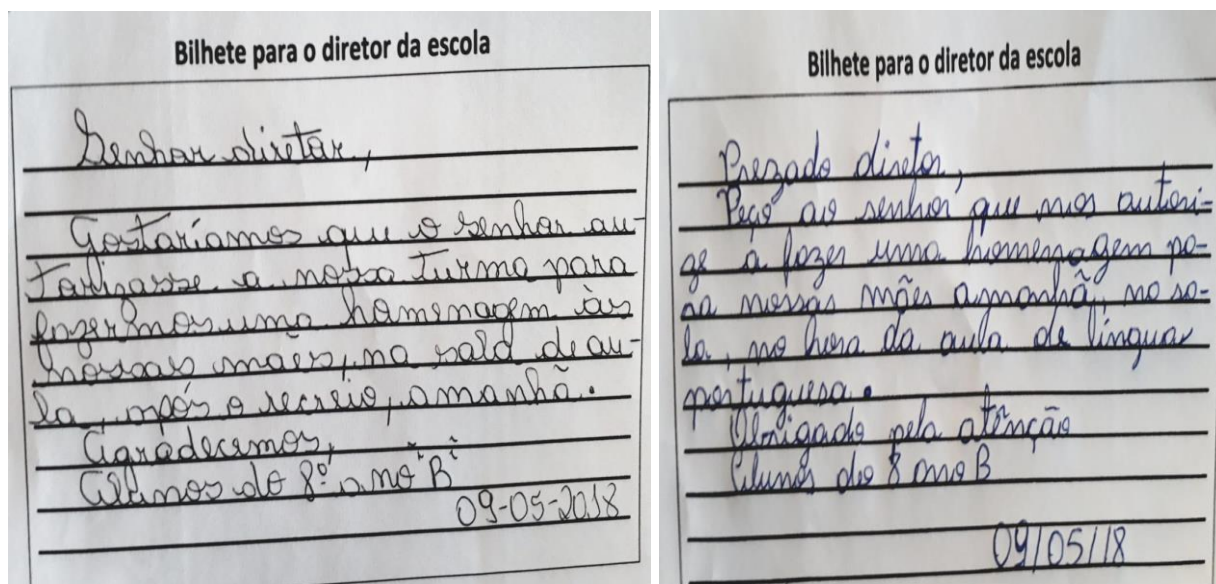 Bilhete para o diretor da escola
Senhor diretor,
Gostaríamos que o senhor au-
torizasse a nossa turma para
fazermos uma homenagem às
nossas mães, na sala de au-
la, após o recreio, amanhã.
Agradecemos,
Alunos do 8º ano "B"
09-05-2018
Bilhete para o diretor da escola
Prezado diretor,
Peço ao senhor que nos autori-
ze à fazer uma homenagem pa-
ra nossas mães amanhã, na sa-
la, na hora da aula de língua
portuguesa.
Obrigado pela atênção
Alunos do 8 ano B
09/05/18